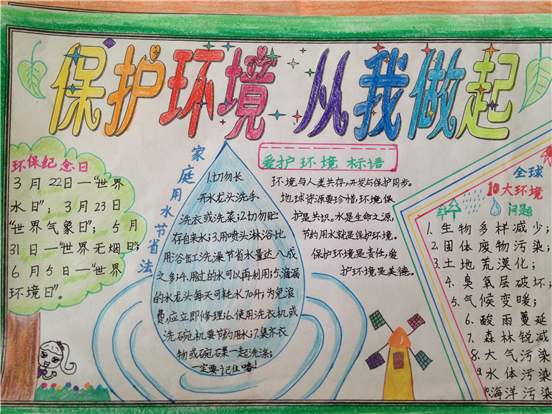 保护环境 从我做起
环保纪念日
3月22日—“世界
水日”；3月23日
“世界气象日”；5月
31日—“世界无烟日”；
6月5日—“世界
环境日”。
家庭用水节省法
1.切勿长
开水龙头洗手、
洗衣或洗菜；2.切勿贮
存自来水；3.用喷头淋浴比
用浴缸洗澡节省水量达八成
之多；4.用过的水可以再利用；5.滴漏
的水龙头每天可耗水70升；为免浪
费，应立即修理；6.使用洗衣机或
洗碗机要节约用水；7.集齐衣
物或碗碟一起洗涤；
一定要记住噢！
爱护环境 标语
环境与人类共存，开发与保护同步。
地球资源要珍惜，环境保
护是共识。水是生命之源，
节约用水就是保护环境。
保护环境是责任，爱
护环境是美德。
全球
10大环境
问题
1.生物多样减少；
2.固体废物污染；
3.土地荒漠化；
4.臭氧层破坏；
5.气候变暖；
6.酸雨蔓延
7.森林锐减
8.大气污染
水体污染
海洋污染